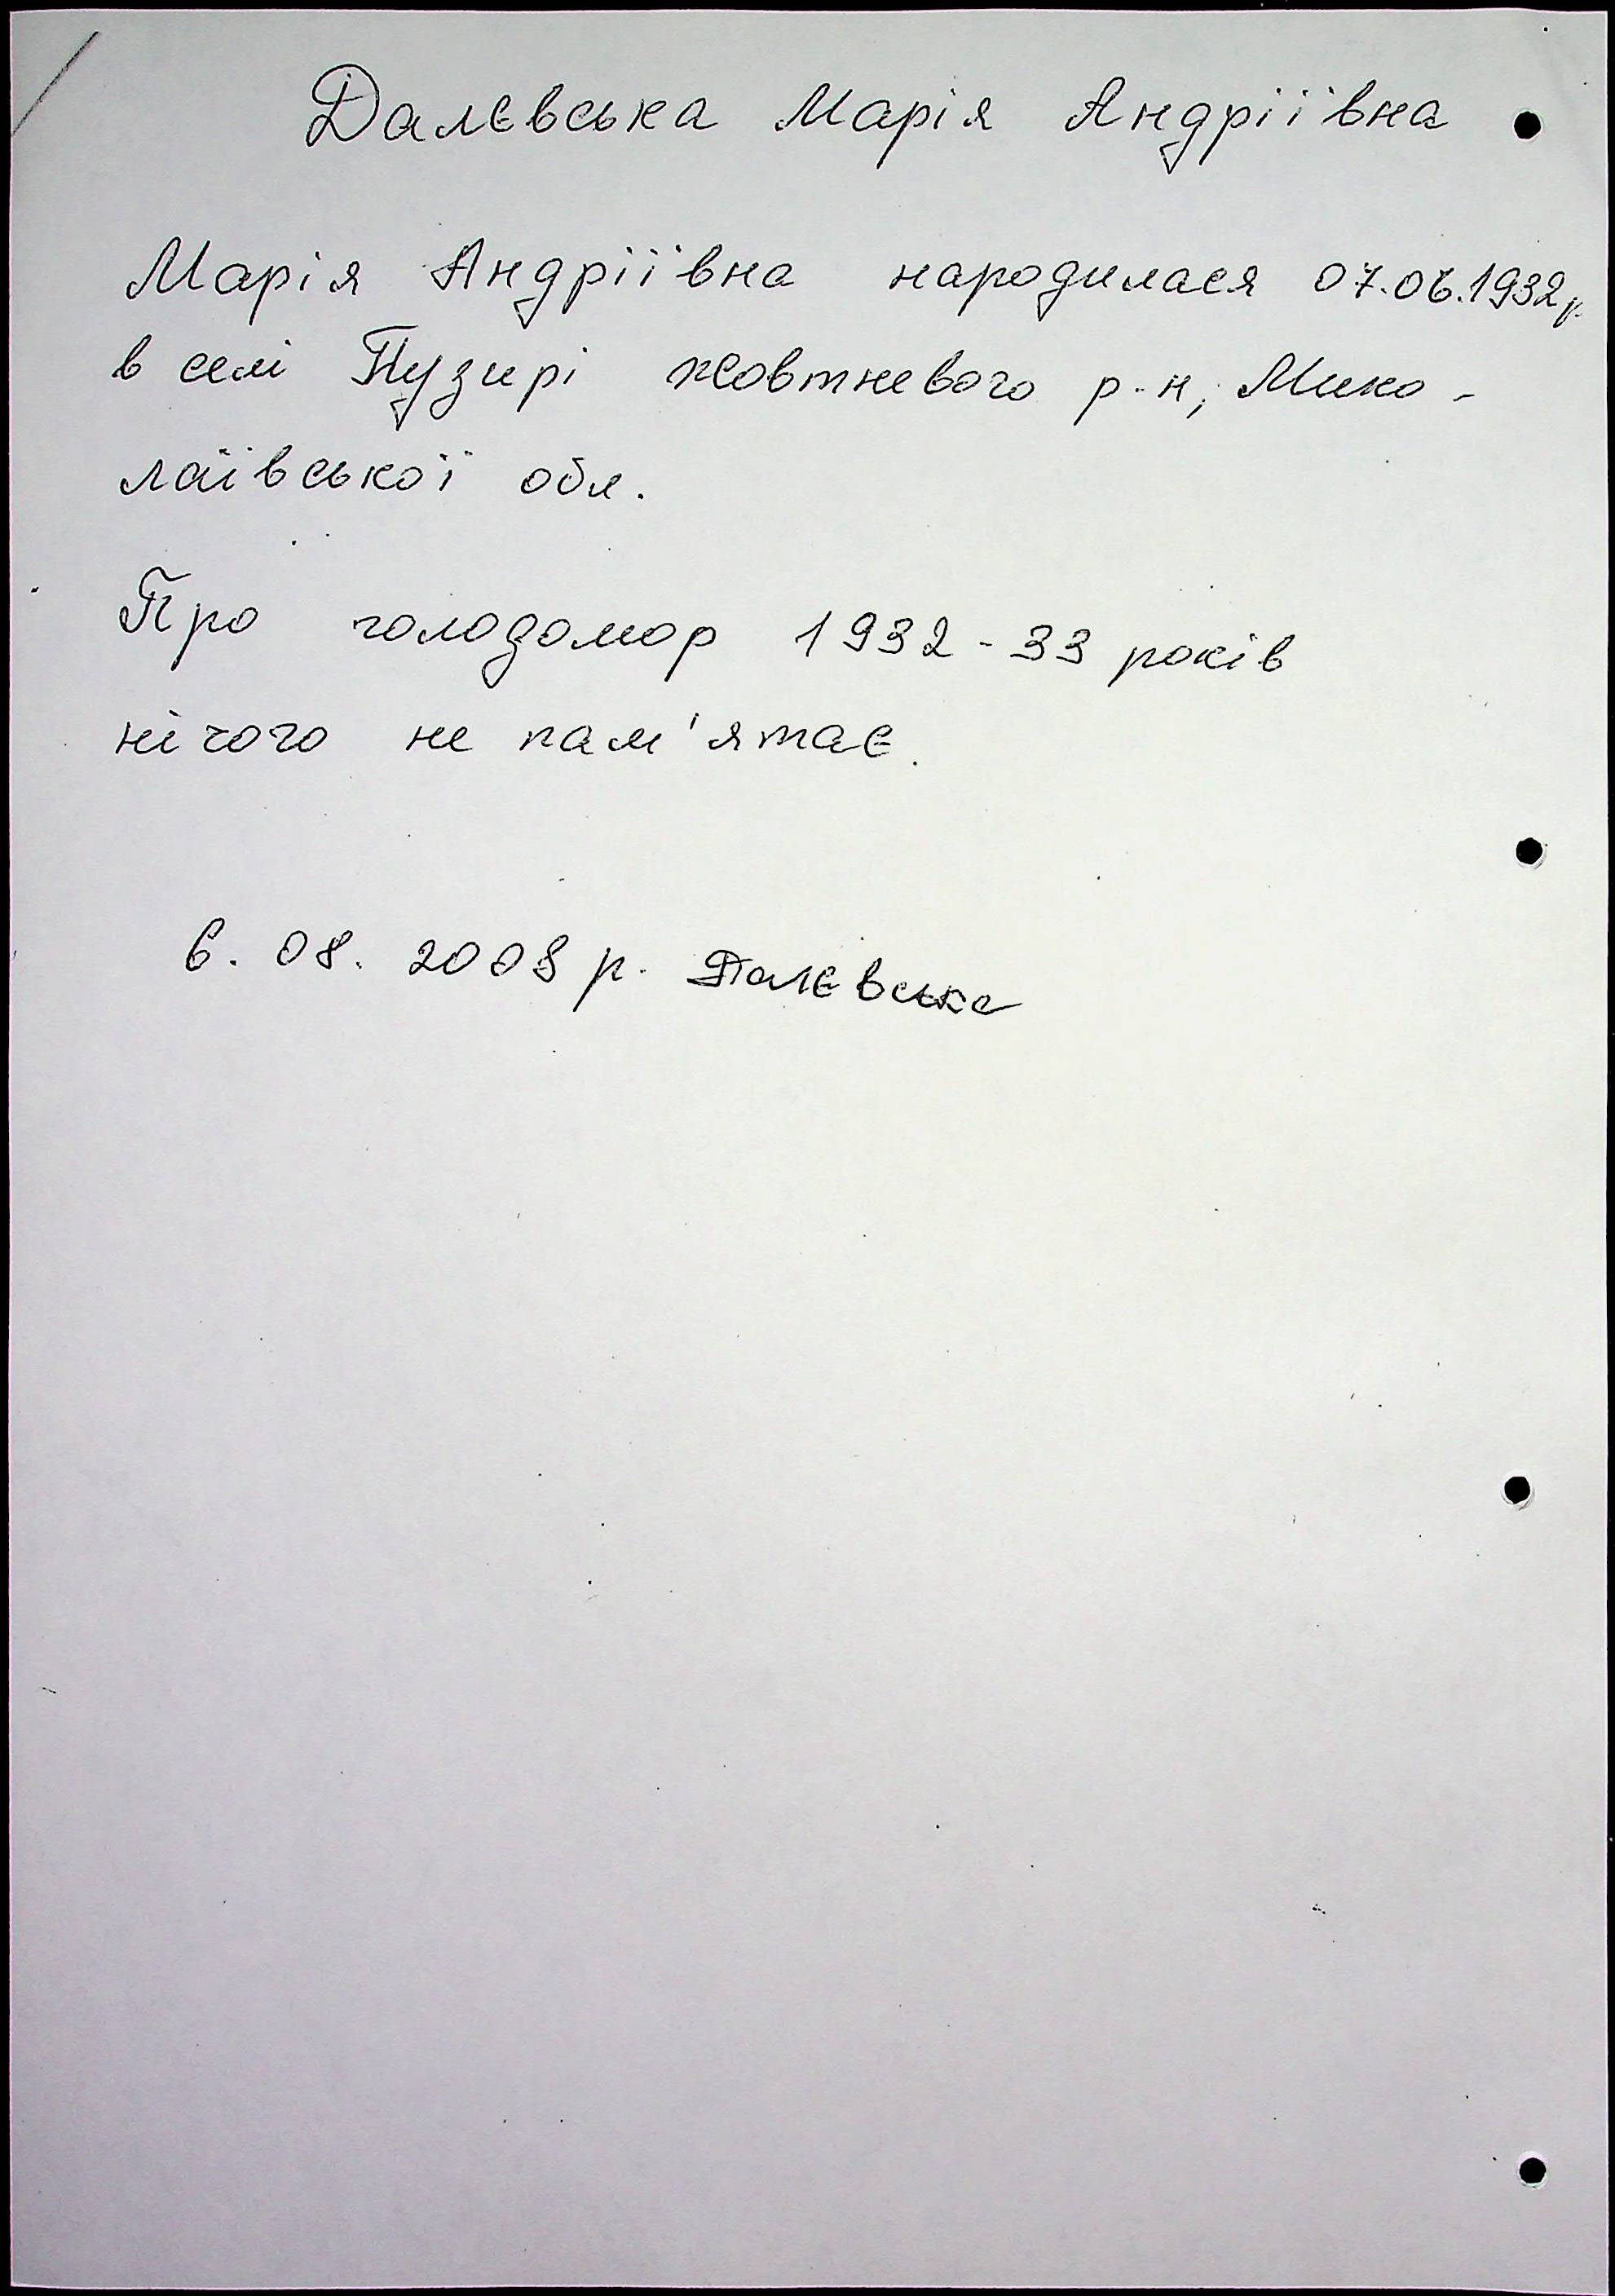 Далєвська Марія Андріївна
Марія Андріївна народилася 07.06.1932р.
в селі Пузирі жовтневого р-н, Мико-
лаївської обл.
Про голодомор 1932-33 років
нічого не пам'ятає.
6. 08. 2008 р. Далєвська